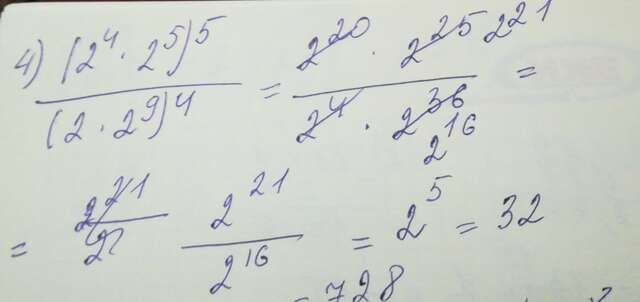 4) (2⁴ · 2⁵)⁵ / (2 · 2⁹)⁴ = 2²⁰ · 2²⁵ 2²¹ / 2⁴ · 2³⁶ 2¹⁶ =
= 2²¹ / 2 2²¹ / 2¹⁶ = 2⁵ = 32
= 728